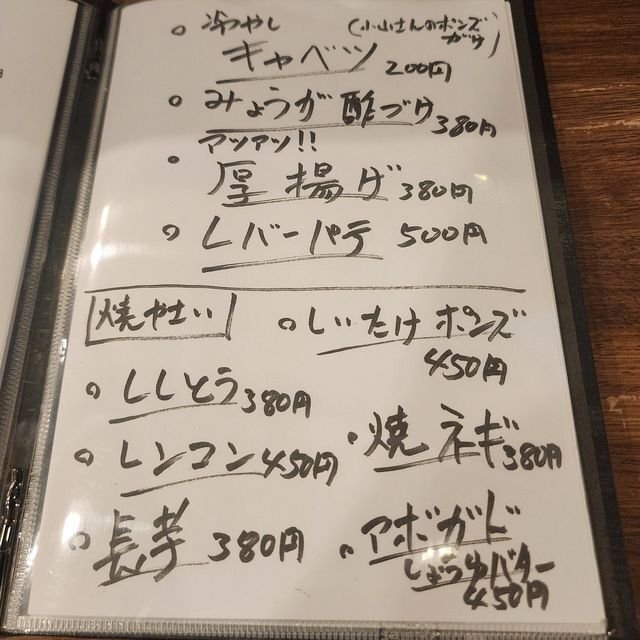 。冷やし (小山さんのポンズ
キャベツ ガケ)
200円
。みょうが酢づケ 380円
アツアツ!!
。厚揚げ 380円
。レバーパテ 500円
焼やさい 。しいたけポンズ
450円
。ししとう 380円
。レンコン 450円 ・焼ネギ 380円
。長芋 380円 。アボガド
しょうゆバター
450円